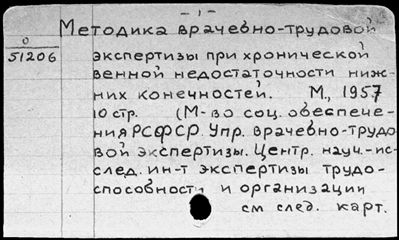 - 1 -
Методика врачебно-трудовой
0
51206
экспертизы при хронической
венной недостаточности ниж-
них конечностей. М., 1957
10 стр. (М-во соц. обеспече-
ния РСФСР. Упр. врачебно-трудо
вой экспертизы. Центр. науч.-ис-
след. ин-т экспертизы трудо-
способности и организации
см след. карт.